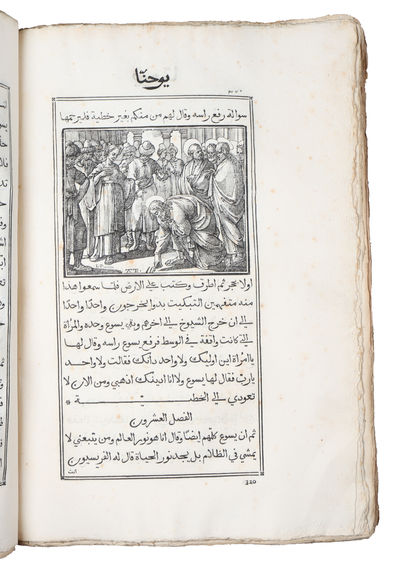 يوحنا
سواله رفع راسه وقال لهم من منكم بغير خطية فليرمها
اولا بحجر ثم اطرق وكتب على الارض فلما سمعوا هذا
منه متفهمين التبكيت بدوا يخرجون واحدا واحدا
الى ان خرج الشيوخ الى اخرهم وبقى يسوع وحده والمراة
التى كانت واقفة في الوسط فرفع يسوع راسه وقال لها
ياامراة اين اوليك ولا واحد دانك فقالت ولا واحد
يارب فقال لها يسوع ولا انا ادينك اذهبي ومن الان لا
تعودي الى الخطية
الفصل العشرون
ثم ان يسوع كلهم ايضا وقال انا هو نور العالم ومن يتبعني لا
يمشي في الظلام بل يجد نور الحياة قال له الفريسيون
320